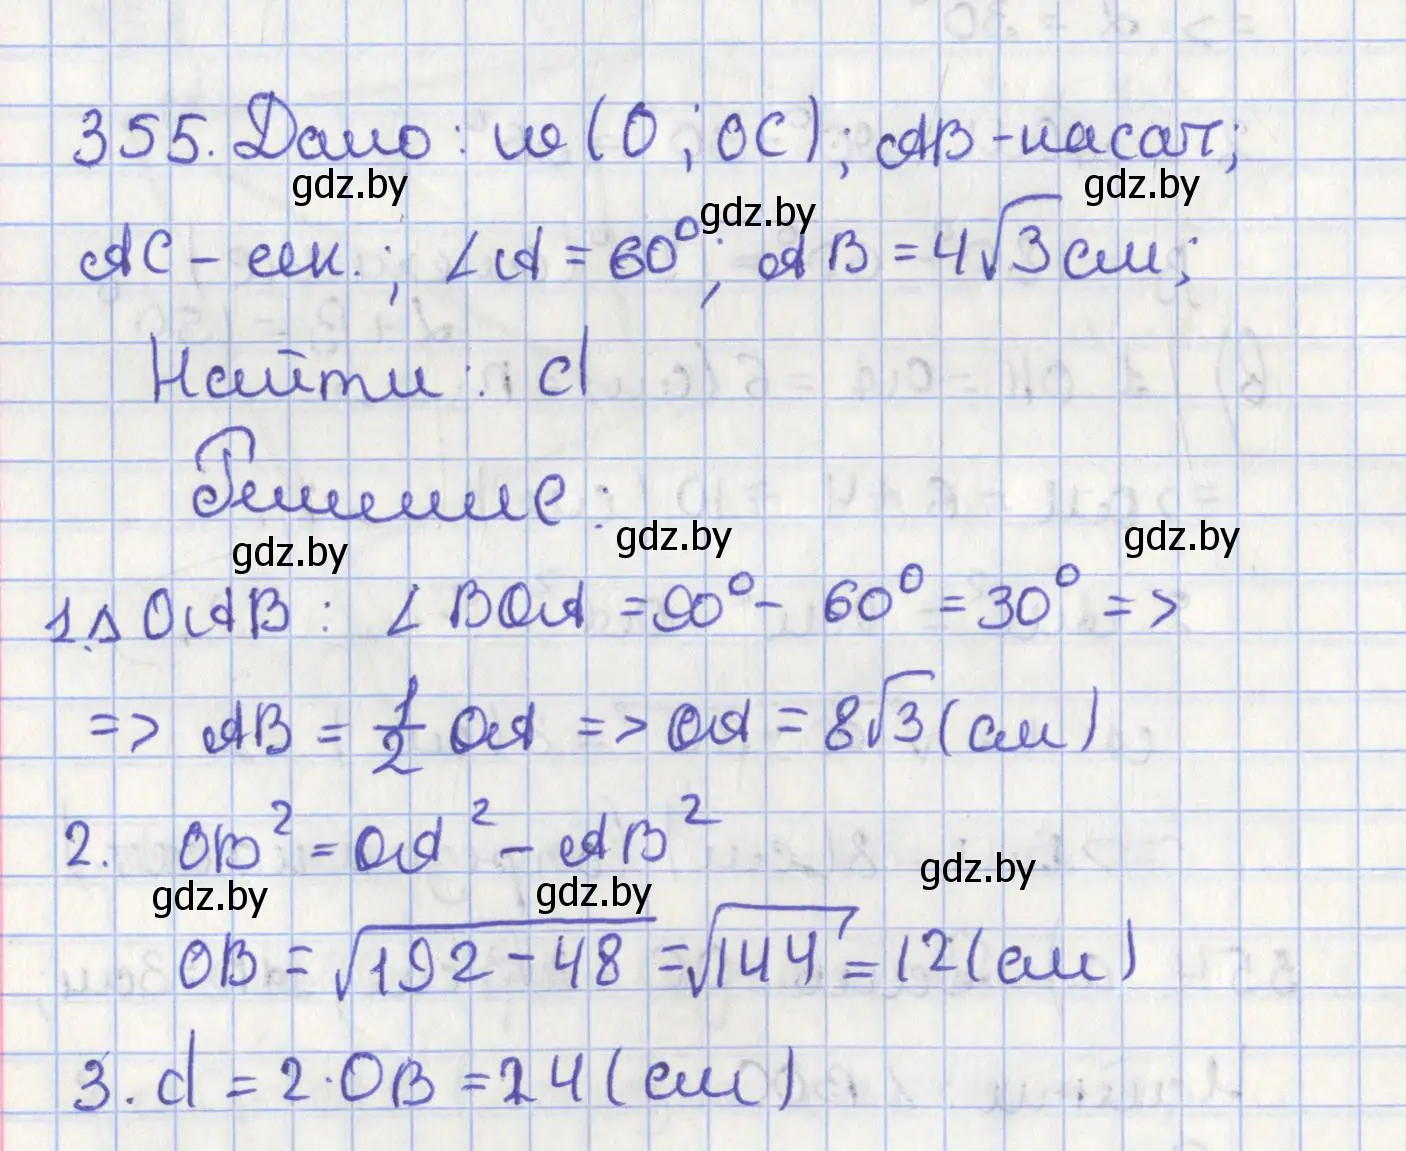 355. Дано: w (O; OC); AB - касат;
gdz.by gdz.by gdz.by
AC - сек.; ∠A = 60°; AB = 4√3 см;
Найти: d
Решение:
gdz.by gdz.by gdz.by
1. △ OAB: ∠BOA = 90° - 60° = 30° =>
=> AB = 1/2 OA => OA = 8√3 (см)
2. OB² = OA² - AB²
gdz.by gdz.by gdz.by
OB = √192 - 48 = √144 = 12 (см)
3. d = 2·OB = 24 (см)